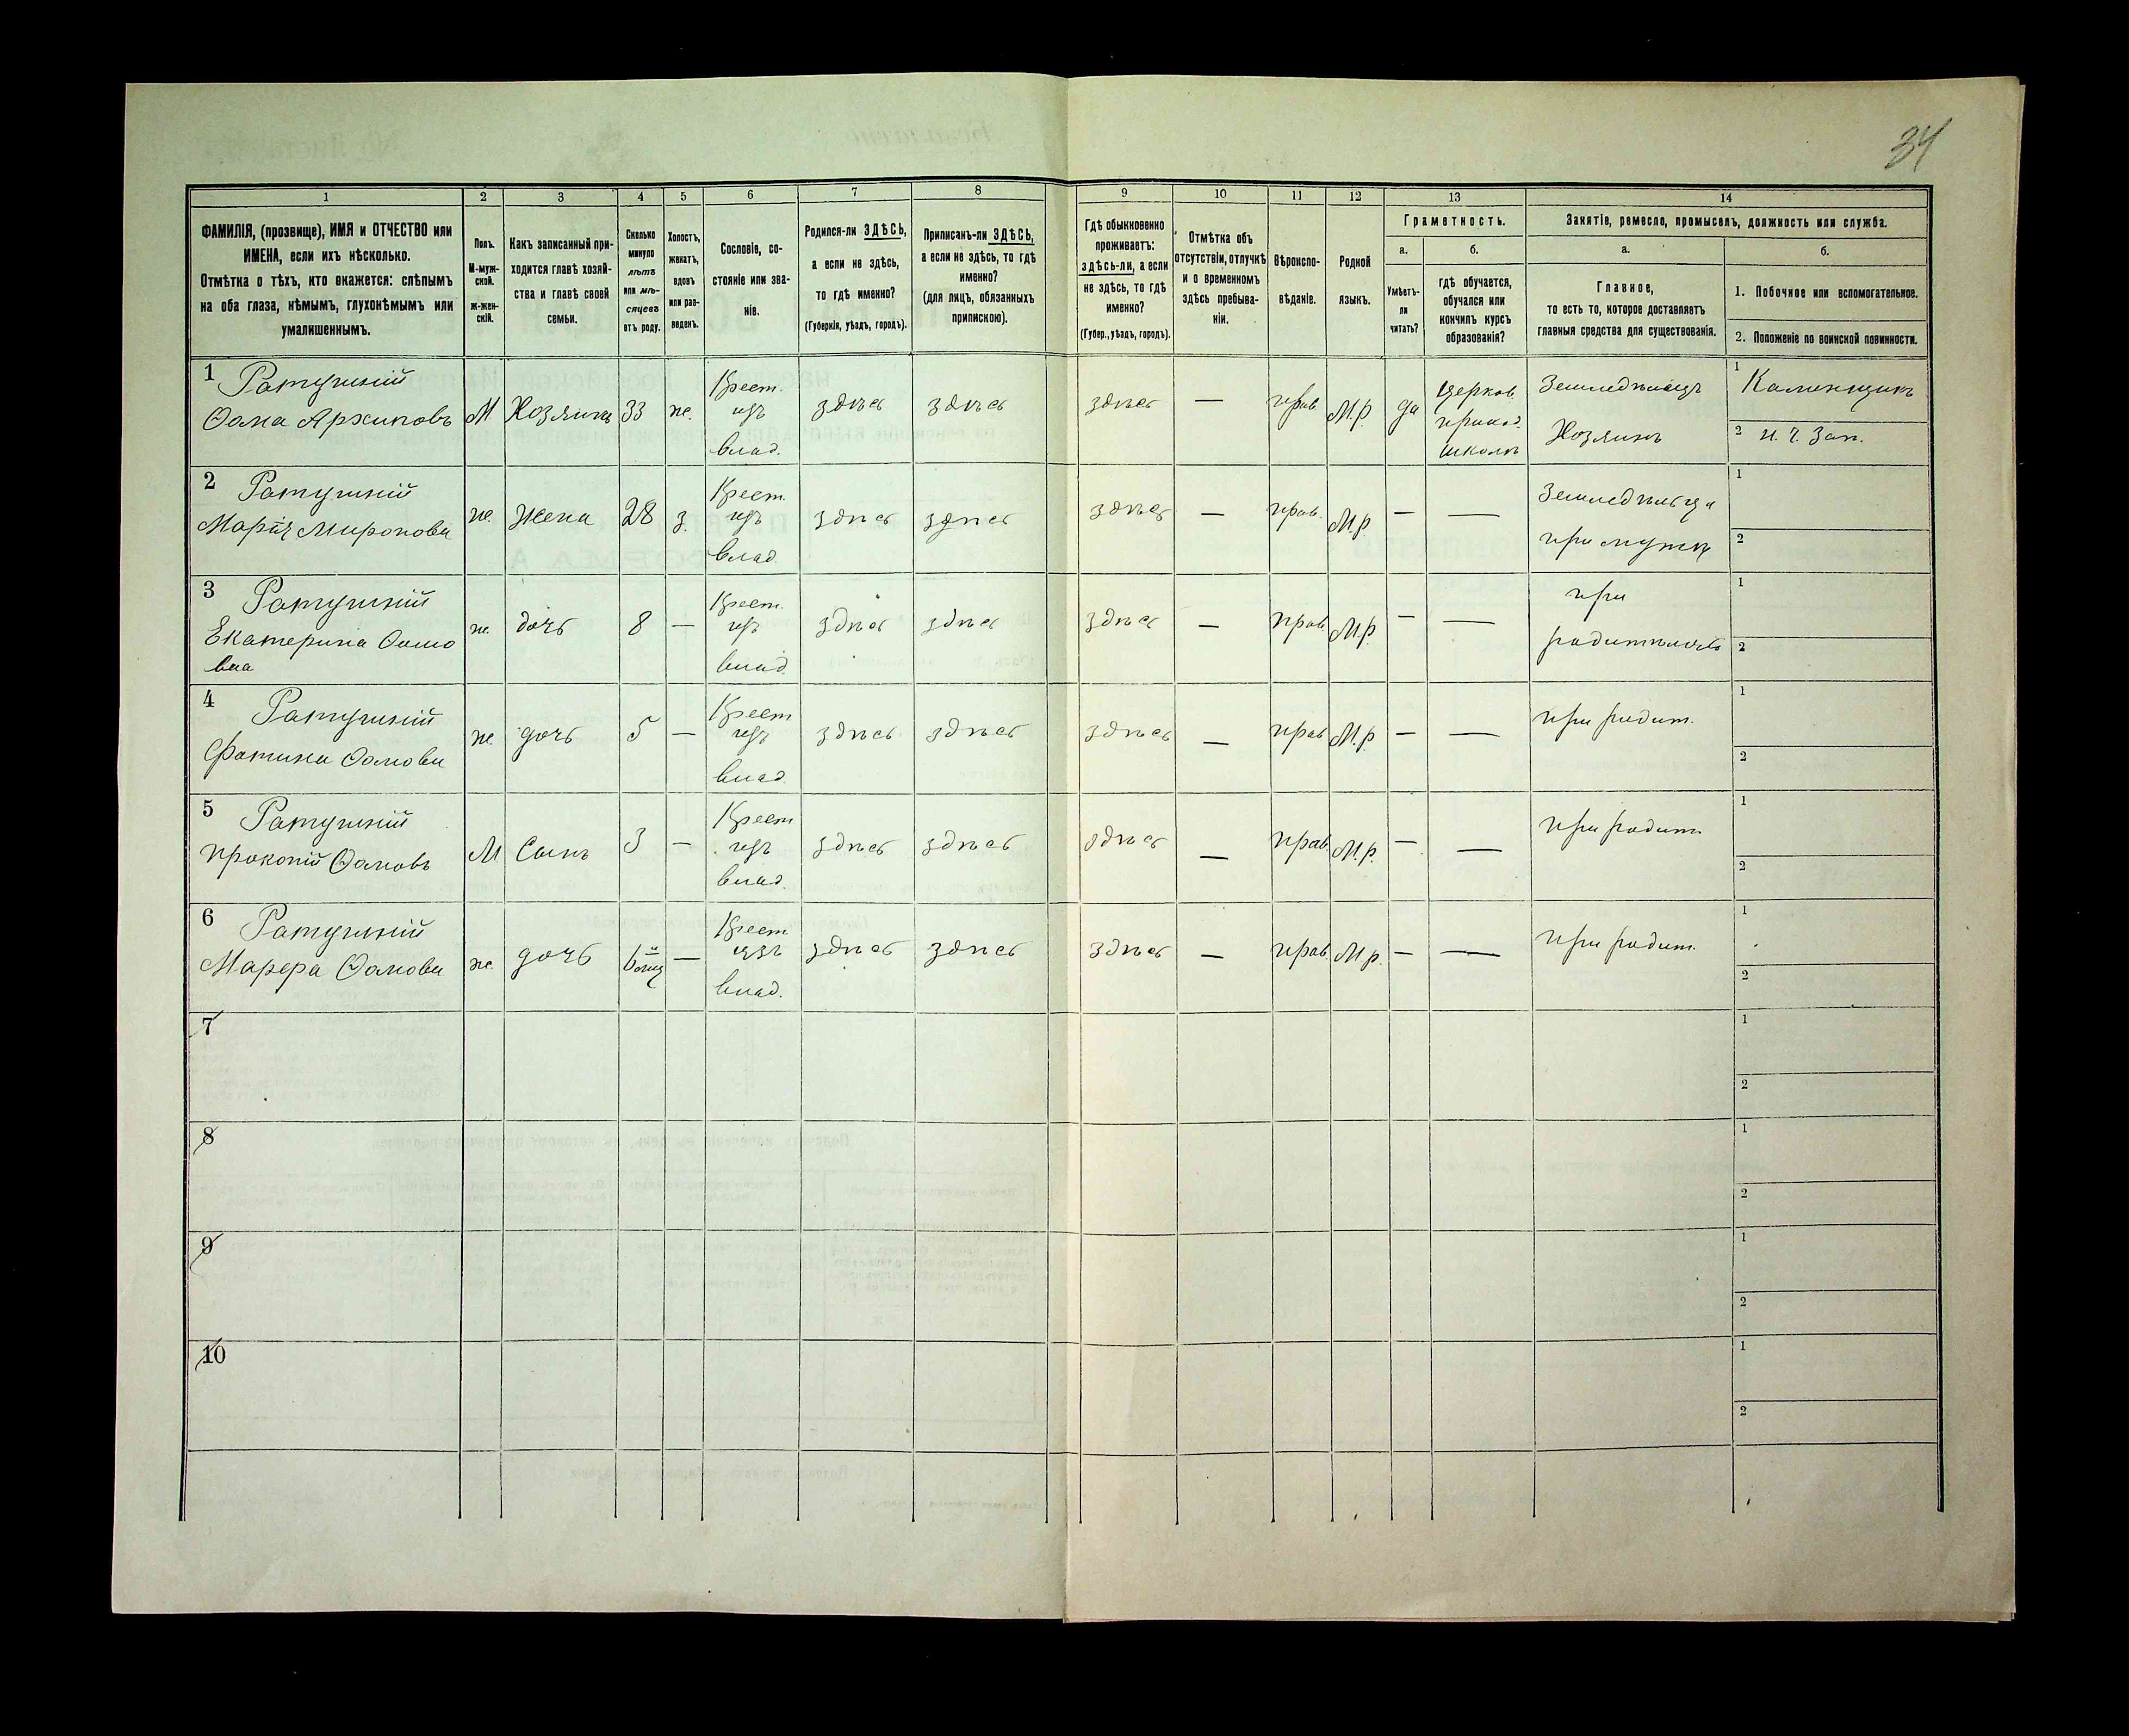 34
1 2 3 4 5 6 7 8 9 10 11 12 13 14
ФАМИЛІЯ, (прозвище), ИМЯ и ОТЧЕСТВО или
ИМЕНА, если ихъ нѣсколько.
Отмѣтка о тѣхъ, кто окажется: слѣпымъ
на оба глаза, нѣмымъ, глухонѣмымъ или
умалишеннымъ.
Полъ.
М-муж-
ской.
ж-жен-
скій.
Какъ записанный при-
ходится главѣ хозяй-
ства и главѣ своей
семьи.
Сколько
минуло
лѣтъ
или мѣ-
сяцевъ
отъ роду.
Холостъ,
женатъ,
вдовъ
или раз-
веденъ.
Сословіе, со-
стояніе или зва-
ніе.
Родился-ли ЗДѢСЬ,
а если не здѣсь,
то гдѣ именно?
(Губернія, уѣздъ, городъ).
Приписанъ-ли ЗДѢСЬ,
а если не здѣсь, то гдѣ
именно?
(для лицъ, обязанныхъ
припискою).
Гдѣ обыкновенно
проживаетъ:
здѣсь-ли, а если
не здѣсь, то гдѣ
именно?
(Губер., уѣздъ, городъ).
Отмѣтка объ
отсутствіи, отлучкѣ
и о временномъ
здѣсь пребыва-
ніи.
Вѣроиспо-
вѣданіе.
Родной
языкъ.
Грамотность.
а.
Умѣетъ-
ли
читать?
б.
гдѣ обучается,
обучался или
кончилъ курсъ
образованія?
Занятіе, ремесло, промыселъ, должность или служба.
а.
Главное,
то есть то, которое доставляетъ
главныя средства для существованія.
б.
1. Побочное или вспомогательное.
2. Положеніе по воинской повинности.
1 Ратушній
Ѳома Архиповъ
М
Хозяинъ
33
же.
Крест.
изъ
влад.
здѣсь
здѣсь
здѣсь
—
прав.
М.р.
да
Церков.
приход.
школѣ
Земледѣлецъ
Хозяинъ
1 Каменщикъ
2 и. ч. Зап.
2 Ратушній
Марія Миронова
же.
жена
28
з.
Крест.
изъ
влад.
здѣсь
здѣсь
здѣсь
—
прав.
М.р.
—
—
Земледѣлица
при мужѣ
1
2
3 Ратушній
Екатерина Ѳомо
вна
же.
дочь
8
—
Крест.
изъ
влад.
здѣсь
здѣсь
здѣсь
—
прав.
М.р.
—
—
при
родителяхъ
1
2
4 Ратушній
Фотина Ѳомова
же.
дочь
5
—
Крест
изъ
влад.
здѣсь
здѣсь
здѣсь
—
прав.
М.р.
—
—
при родит.
1
2
5 Ратушній
Прокопій Ѳомовъ
М
Сынъ
3
—
Крест
изъ
влад.
здѣсь
здѣсь
здѣсь
—
прав.
М.р.
—
—
при родит.
1
2
6 Ратушній
Ѳомова
же.
дочь
—
Крест
изъ
влад.
здѣсь
здѣсь
здѣсь
—
прав.
М.р.
—
—
при родит.
1
2
7
1
2
8
1
2
9
1
2
10
1
2